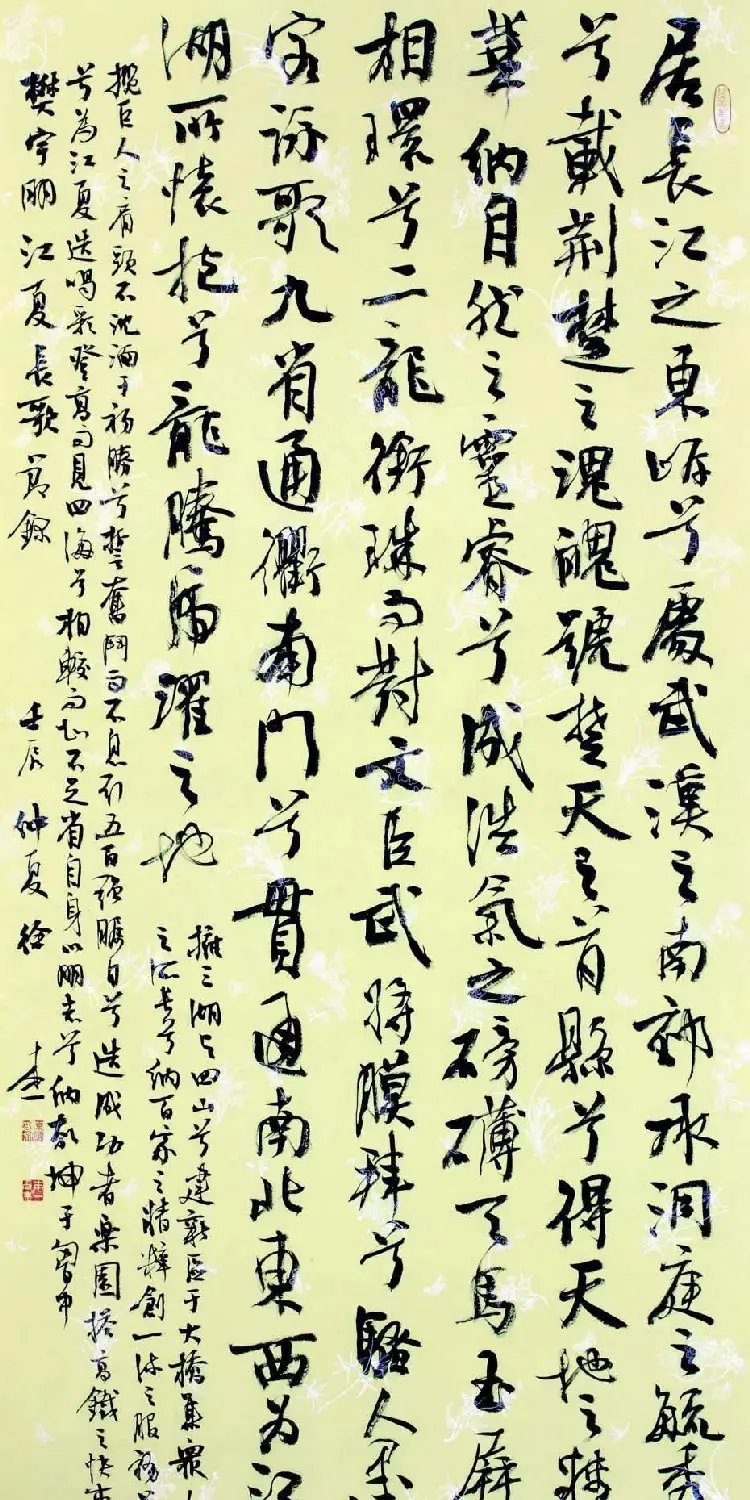 居長江之東岸兮處武漢之南部承洞庭之毓秀
兮戴荆楚之瑰醜號楚天之首縣兮得天地之精
華納自然之靈睿兮成浩氣之磅礴天馬玉屏
相環兮二龍銜珠而對文臣武將膜拜兮騷人墨
客詠歌九省通衢南門兮貫通南北東西为江
湖所懷抱兮龍騰虎躍之地
擁三湖与四山兮建新區于大橋集眾
之所長兮納百家之精粹創一流之服務
攬巨人之肩頭不沈湎于初勝兮誓奮鬥而不息引五百强矚目兮造成功者樂園搭高鐵之快車
兮為江夏送喝彩登高而見四海兮相較而知不足省自身以明志兮纳乾坤于胸中
樊宇朋江夏長歌節錄 壬辰仲夏徐